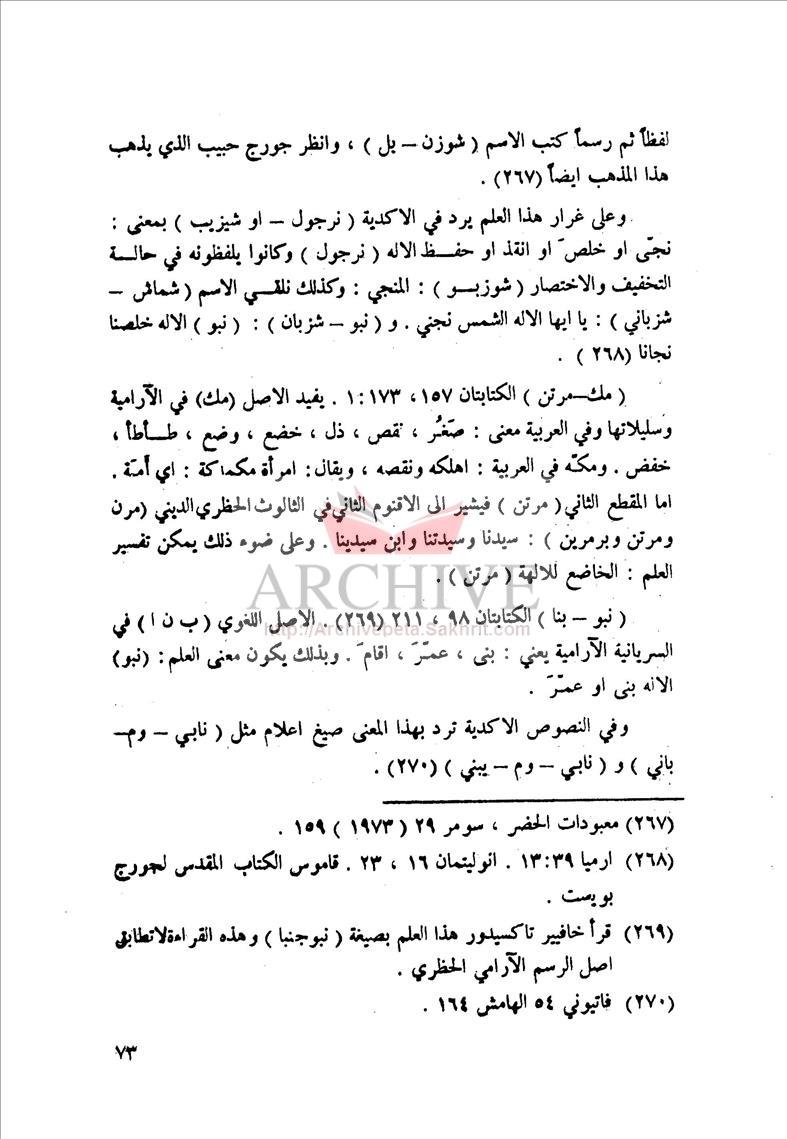 لفظاً ثم رسماً كتب الاسم ( شوزن – بل ) ، وانظر جورج حبيب الذي يذهب
هذا المذهب ايضاً (٢٦٧) .
وعلى غرار هذا العلم يرد في الاكدية ( نرجول – او شيزيب ) بمعنى :
نجّى او خلصَ او انقذ او حفــظ الاله ( نرجول ) وكانوا يلفظونه في حالــة
التخفيف والاختصار ( شوزبــو ) : المنجي : وكذلك نلقــي الاسم ( شماش –
شزباني ) : يا ايها الاله الشمس نجني . و ( نبو – شزبان ) : ( نبو ) الاله خلصنا
نجانا (٢٦٨ ) .
( مك–مرتن ) الكتابتان ١٥٧ ، ١٧٣ : ١ . يفيد الاصل (مك) في الآرامية
وسليلاتها وفي العربية معنى : صَغُر ، نقص ، ذل ، خضع ، وضع ، طــأطأ ،
خفض . ومكّه في العربية : اهلكه ونقصه ، ويقال : امرأة مكماكة : اي أمَة .
اما المقطع الثاني ( مرتن ) فيشير الى الاقنوم الثاني في الثالوث الحظري الديني (مرن
ومرتن وبرمرين ) : سيدنا وسيدتنا وابن سيدينا . وعلى ضوء ذلك يمكن تفسير
العلم : الخاضع للالهة ( مرتن ) .
ARCHIVE
( نبو – بنا ) الكتابتان ٩٨ ، ٢١١ (٢٦٩) . الاصل اللغوي ( ب ن ا ) في
http://Archivebeta.Sakhrit.com
السريانية الآرامية يعني : بنى ، عمّرَ ، اقامَ . وبذلك يكون معنى العلم : (نبو)
الاله بنى او عمّرَ .
وفي النصوص الاكدية ترد بهذا المعنى صيغ اعلام مثل ( نابي – وم–
باني ) و ( نابي – وم – يبني ) (٢٧٠) .
(٢٦٧) معبودات الحضر ، سومر ٢٩ ( ١٩٧٣ ) ١٥٩ .
(٢٦٨) ارميا ٣٩:١٣ . انوليتمان ١٦ ، ٢٣ . قاموس الكتاب المقدس لجورج
بويست .
(٢٦٩) قرأ خافيير تاكسيدور هذا العلم بصيغة ( نبوجنبا ) وهذه القراءة لاتطابق
اصل الرسم الآرامي الحظري .
(٢٧٠) فاتيوني ٥٤ الهامش ١٦٤ .
٧٣